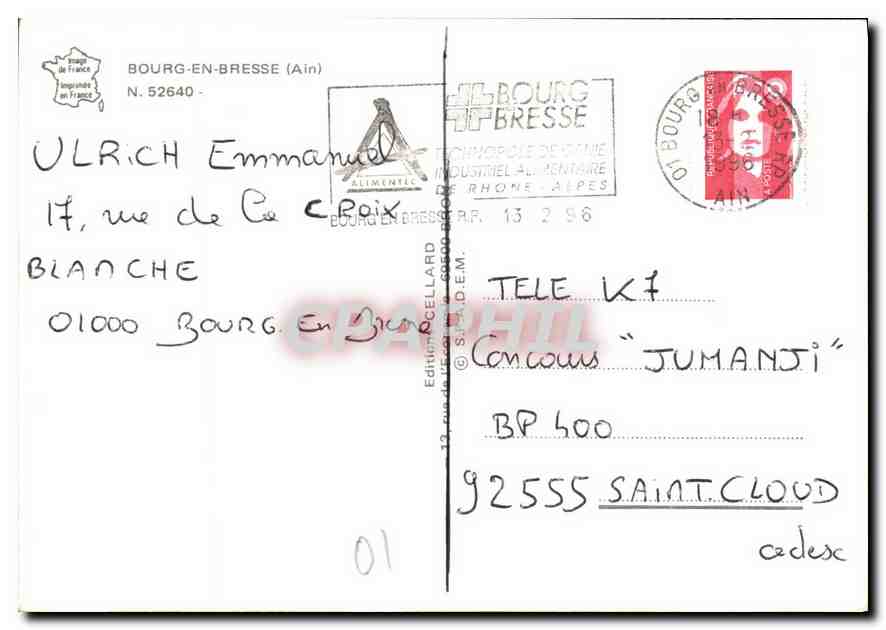 Image
de France
Imprimée
en France
BOURG-EN-BRESSE (Ain)
N. 52640 -
ALIMENTEC
BOURG
BRESSE
TECHNOPOLE DE GENIE
INDUSTRIEL ALIMENTAIRE
DE RHONE - ALPES
BOURG EN BRESSE R.P. 13 2 96
01 BOURG EN BRESSE RP
18 H
13
1996
AIN
REPUBLIQUE FRANÇAISE
LA POSTE
ULRiCH Emmanuel
17, rue de La CROix
BLANCHE
01000 BOURG. En Bresse
Edition CELLARD
13, rue de l'Ecole 69500 BRON
© S.P.A.D.E.M.
CPAPHIL
TELE K7
Concours "JUMANJi"
BP 400
92555 SAiNT.CLOUD
cedesc
01